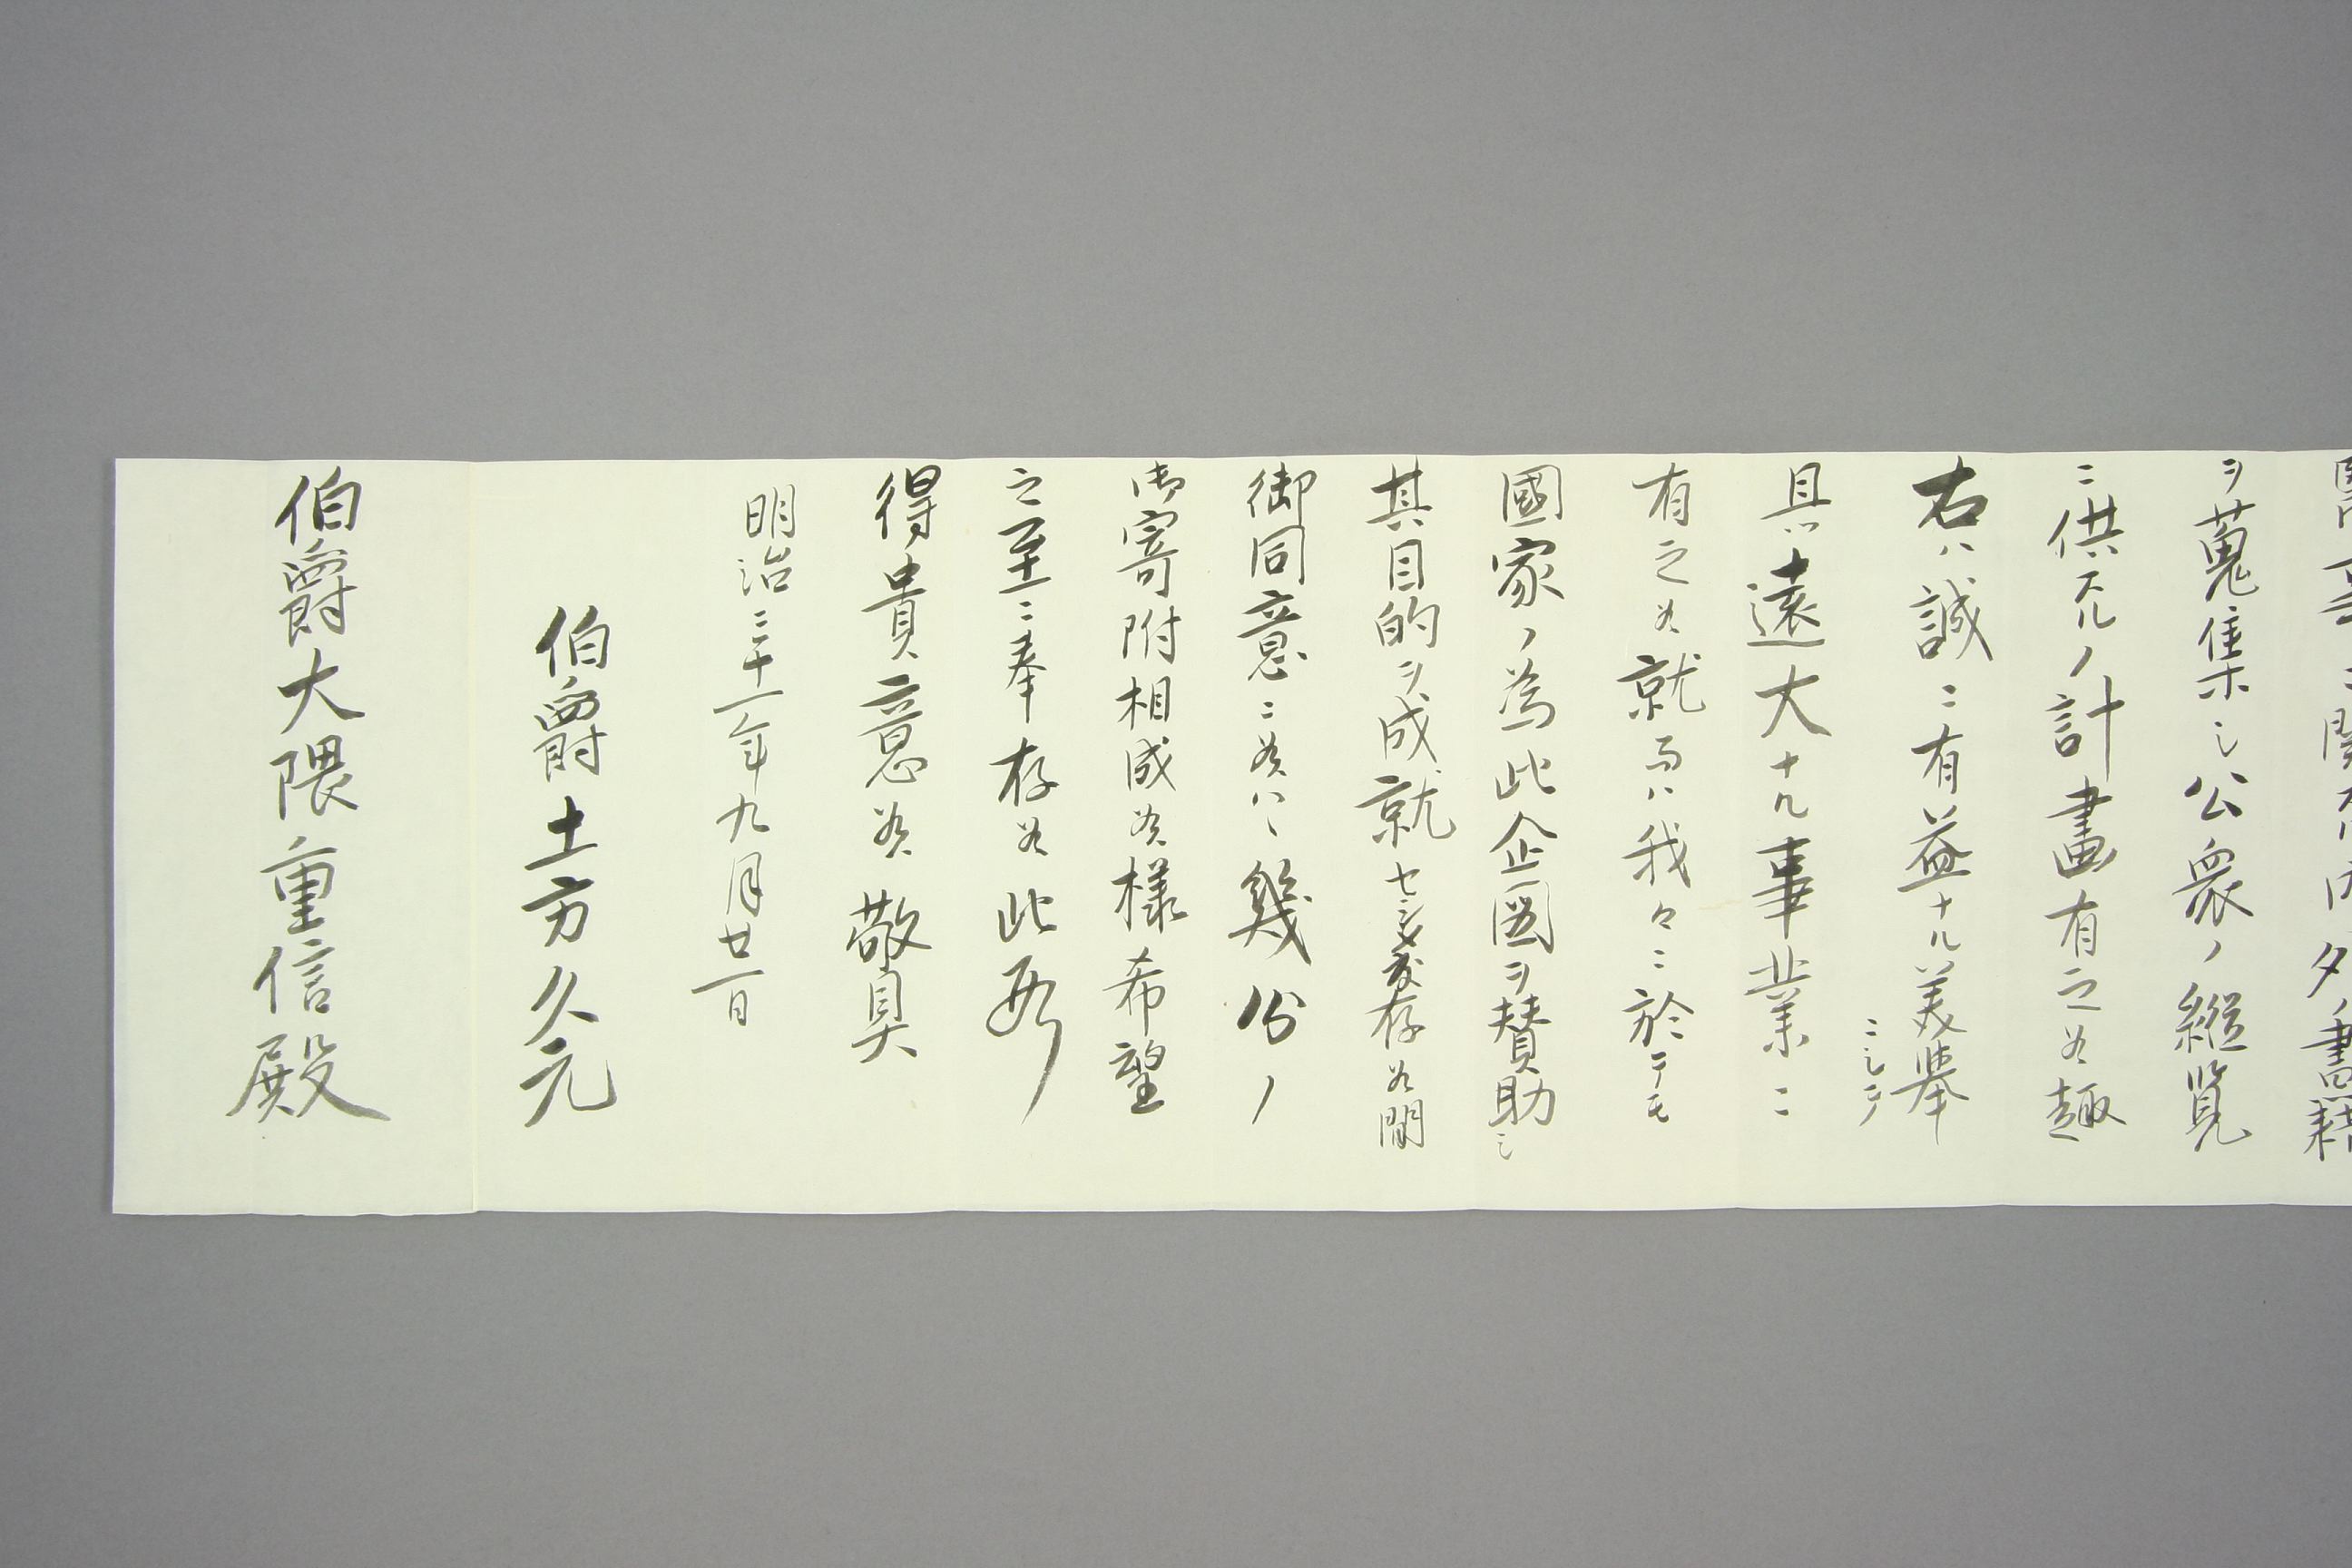 ヲ蒐集シ公衆ノ縦覧
ニ供スルノ計畫有之候趣
右ハ誠ニ有益ナル美擧ニシテ
且ツ遠大ナル事業ニ
有之候就而ハ我々ニ於テモ
國家ノ為此企図ヲ賛助シ
其目的ヲ成就セシメ度存候間
御同意ニ候ハヽ幾分ノ
御寄附相成候様希望
之至ニ奉存候此段
得貴意候敬具
明治三十一年九月廿一日
伯爵土方久元
伯爵大隈重信殿